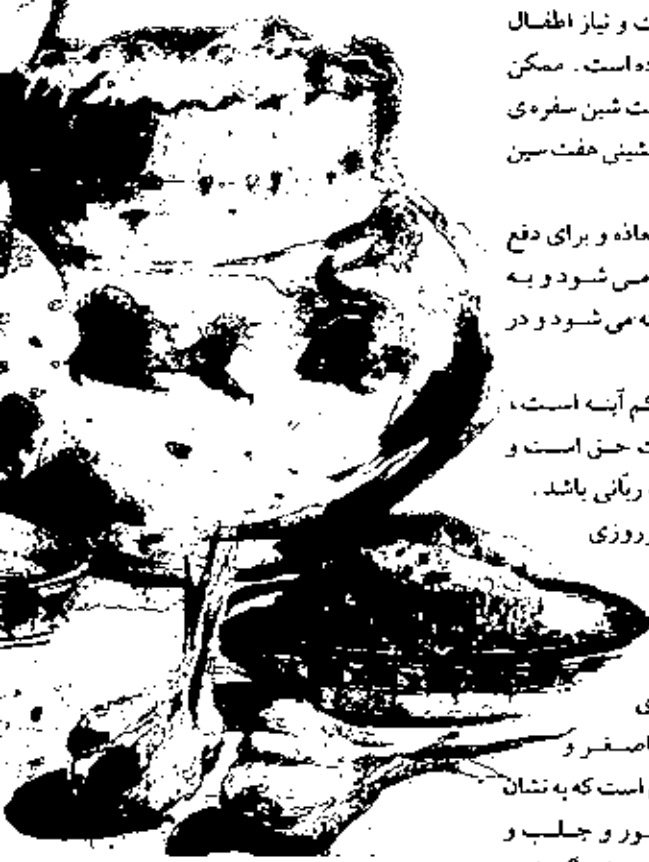 ت و نیاز اطفال
ده است . ممکن
ت شین سفره ی
شینی هفت سین
عاذه و برای دفع
می شود و به
ه می شود و در
کم آینه است ،
ت حق است و
ربّانی باشد .
روزی
ی
اصغر و
است که به نشان
ور و جلب و